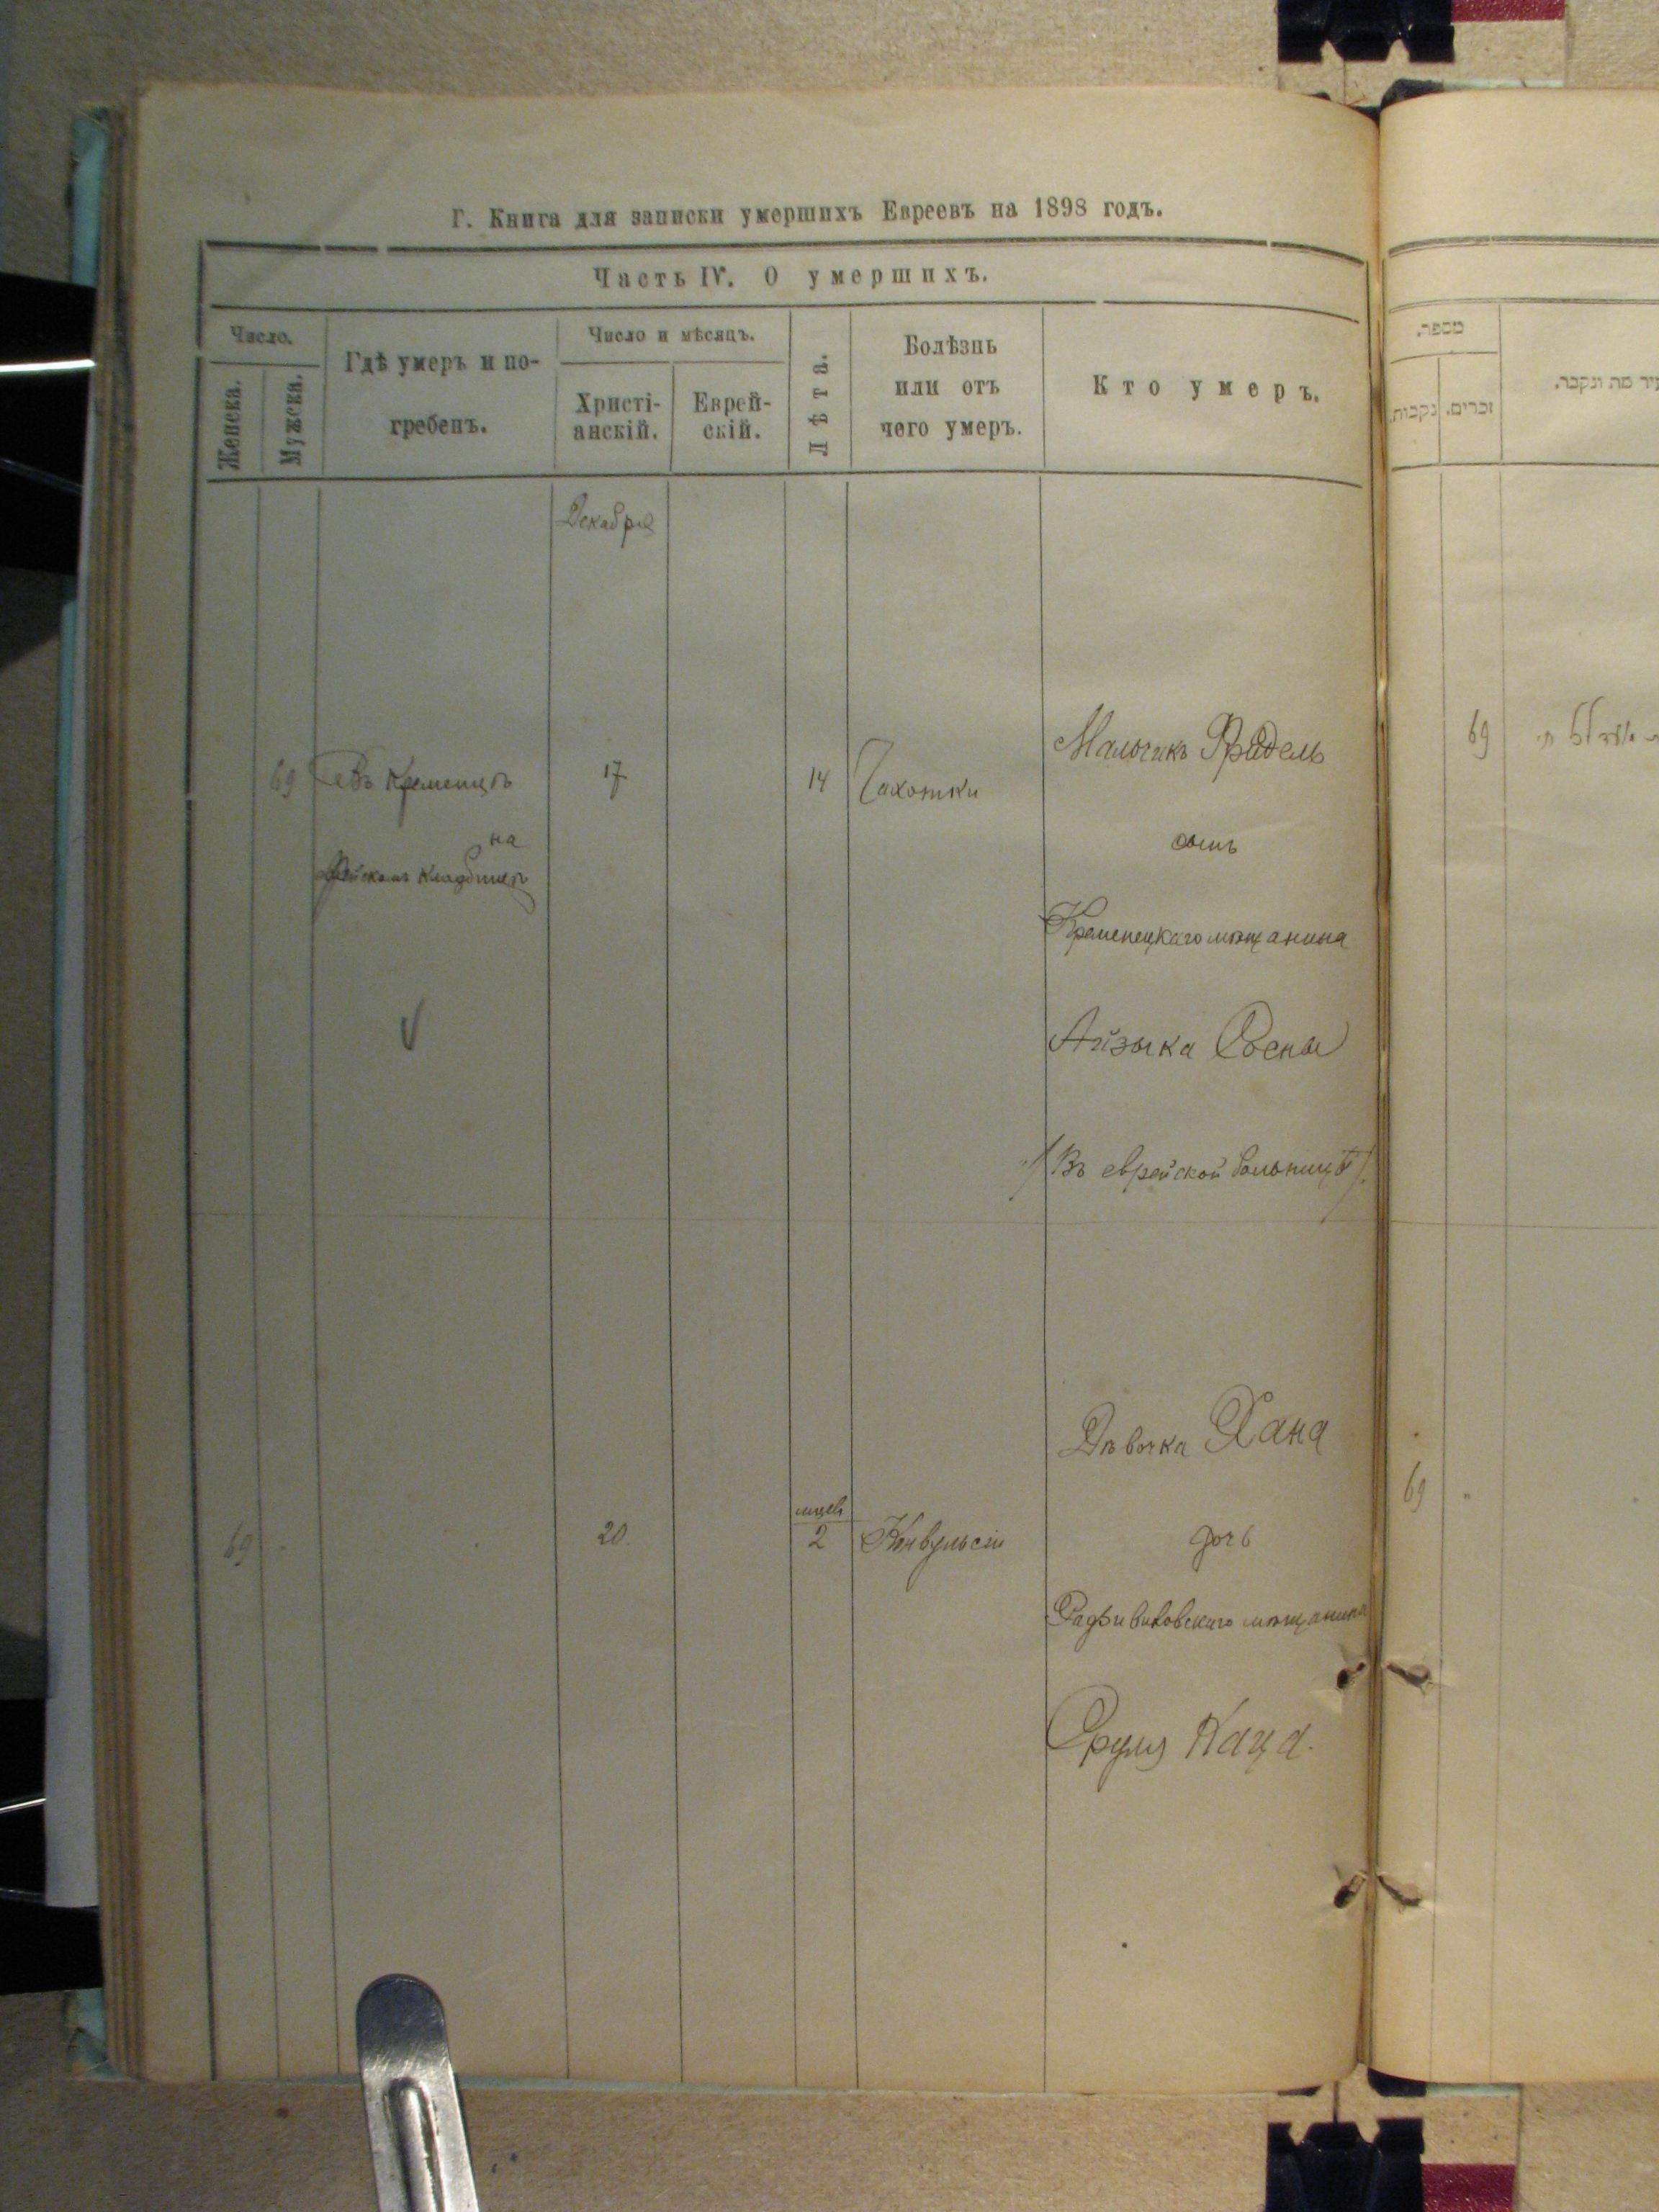 Г. Книга для записки умершихъ Евреевъ на 1898 годъ.
Часть IV. О умершихъ.
Число.
Женска.
Мужска.
Гдѣ умеръ и по-
гребенъ.
Число и мѣсяцъ.
Христі-
анскій.
Еврей-
скій.
Лѣта.
Болѣзнь
или отъ
чего умеръ.
Кто умеръ.
Декабря
69 Въ Кременцѣ 17 14 Чахотки Мальчикъ Фридель
на
кладбищѣ
сынъ
Кременецкаго мѣщанина
Айзыка Сосны
/Въ еврейской больницѣ/.
69 20. мцев 2 Конвульсіи Дѣвочка Хана
дочь
Радзивиловскаго мѣщанина
Сруля Каца.
מספר.
נקבות.
זכרים.
מת ונקבר.
69
69